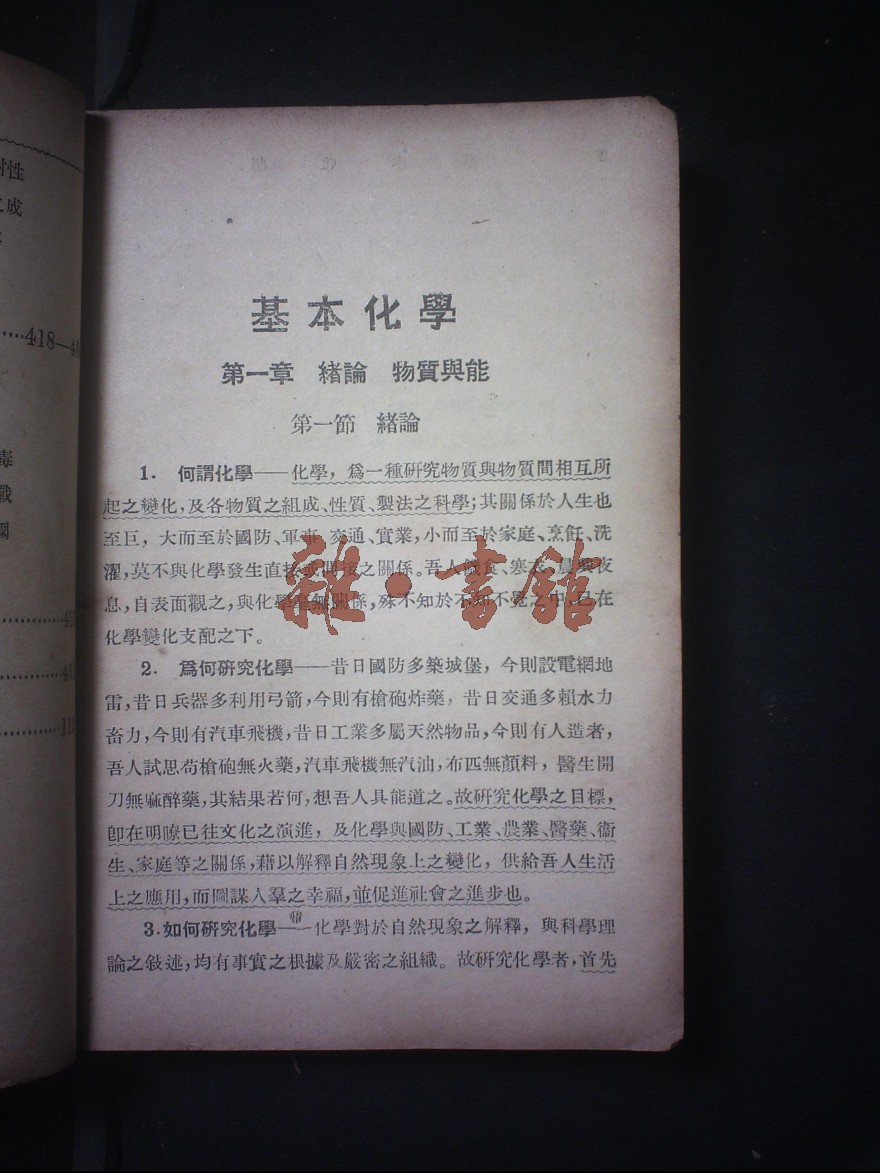 對性
之成
418—43
毒
戰
國
43
11
基本化學
第一章 緒論 物質與能
第一節 緒論
1. 何謂化學——化學，爲一種研究物質與物質間相互所
起之變化，及各物質之組成、性質、製法之科學；其關係於人生也
至巨，大而至於國防、軍事、交通、實業，小而至於家庭、烹飪、洗
濯，莫不與化學發生直接或間接之關係。吾人飢食、寒衣、晨興夜
息，自表面觀之，與化學毫無關係，殊不知於不知不覺之中，已在
化學變化支配之下。
2. 爲何研究化學——昔日國防多築城堡，今則設電網地
雷，昔日兵器多利用弓箭，今則有槍砲炸藥，昔日交通多賴水力
畜力，今則有汽車飛機，昔日工業多屬天然物品，今則有人造者，
吾人試思苟槍砲無火藥，汽車飛機無汽油，布匹無顏料，醫生開
刀無麻醉藥，其結果若何，想吾人具能道之。故研究化學之目標，
卽在明瞭已往文化之演進，及化學與國防、工業、農業、醫藥、衞
生、家庭等之關係，藉以解釋自然現象上之變化，供給吾人生活
上之應用，而圖謀人羣之幸福，並促進社會之進步也。
3. 如何研究化學——化學對於自然現象之解釋，與科學理
論之敍述，均有事實之根據及嚴密之組織。故研究化學者，首先
雜·書館